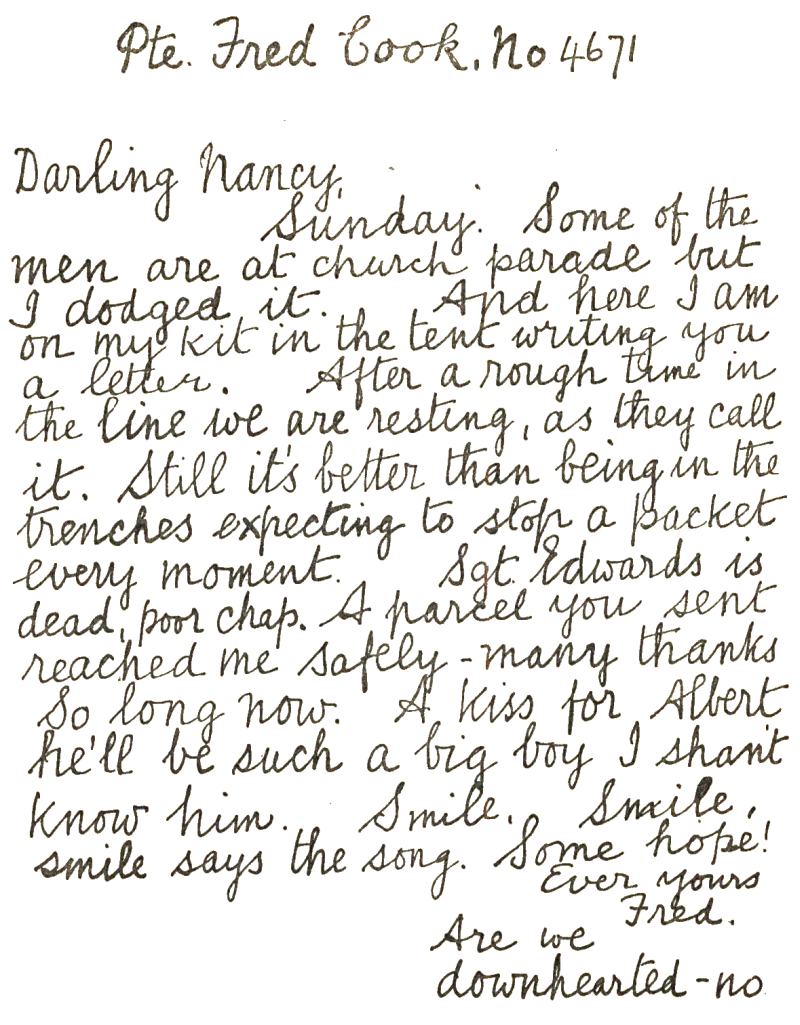 Pte. Fred Cook. No 4671
Darling Nancy,
Sunday. Some of the
men are at church parade but
I dodged it. And here I am
on my kit in the tent writing you
a letter. After a rough time in
the line we are resting, as they call
it. Still it's better than being in the
trenches expecting to stop a packet
every moment. Sgt. Edwards is
dead, poor chap. A parcel you sent
reached me safely - many thanks
So long now. A kiss for Albert
he'll be such a big boy I shan't
know him. Smile. Smile,
smile says the song. Some hope!
Ever yours
Fred.
Are we
downhearted - no